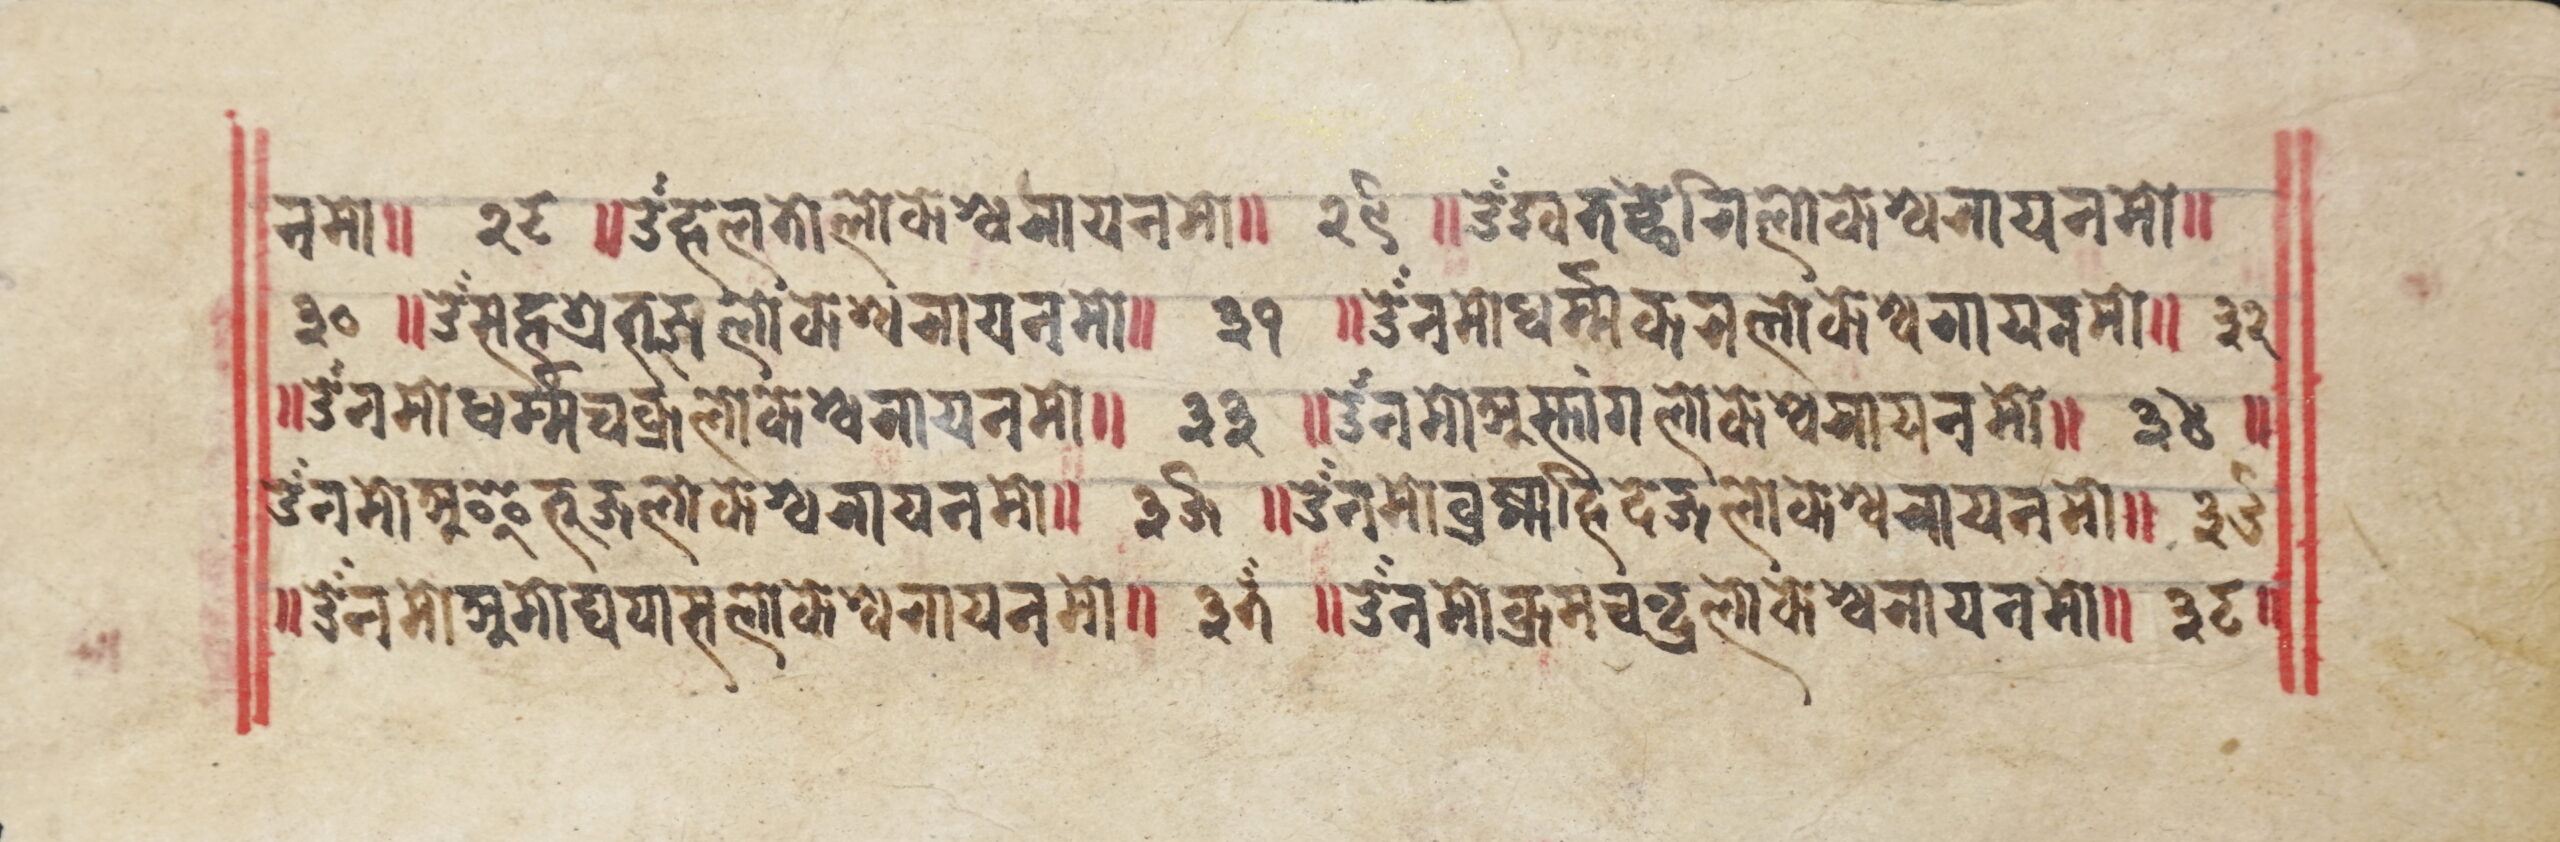 नमो॥ २८ ॥ॐह्रलतोलोकेश्वरायनमो॥ २९ ॥ॐ लोकेश्वरायनमो॥
३० ॥ॐसहश्रभूजलोकेश्वरायनमो॥ ३१ ॥ॐनमोधर्म्मकरलोकेश्वरायनमो॥ ३२
॥ॐनमोधर्म्मचक्रलोकेश्वरायनमो॥ ३३ ॥ॐनमो लोकेश्वरायनमो॥ ३४ ॥
ॐनमो लोकेश्वरायनमो॥ ३५ ॥ॐनमो लोकेश्वरायनमो॥ ३६
॥ॐनमोअमोघपासलोकेश्वरायनमो॥ ३७ ॥ॐनमो लोकेश्वरायनमो॥ ३८॥